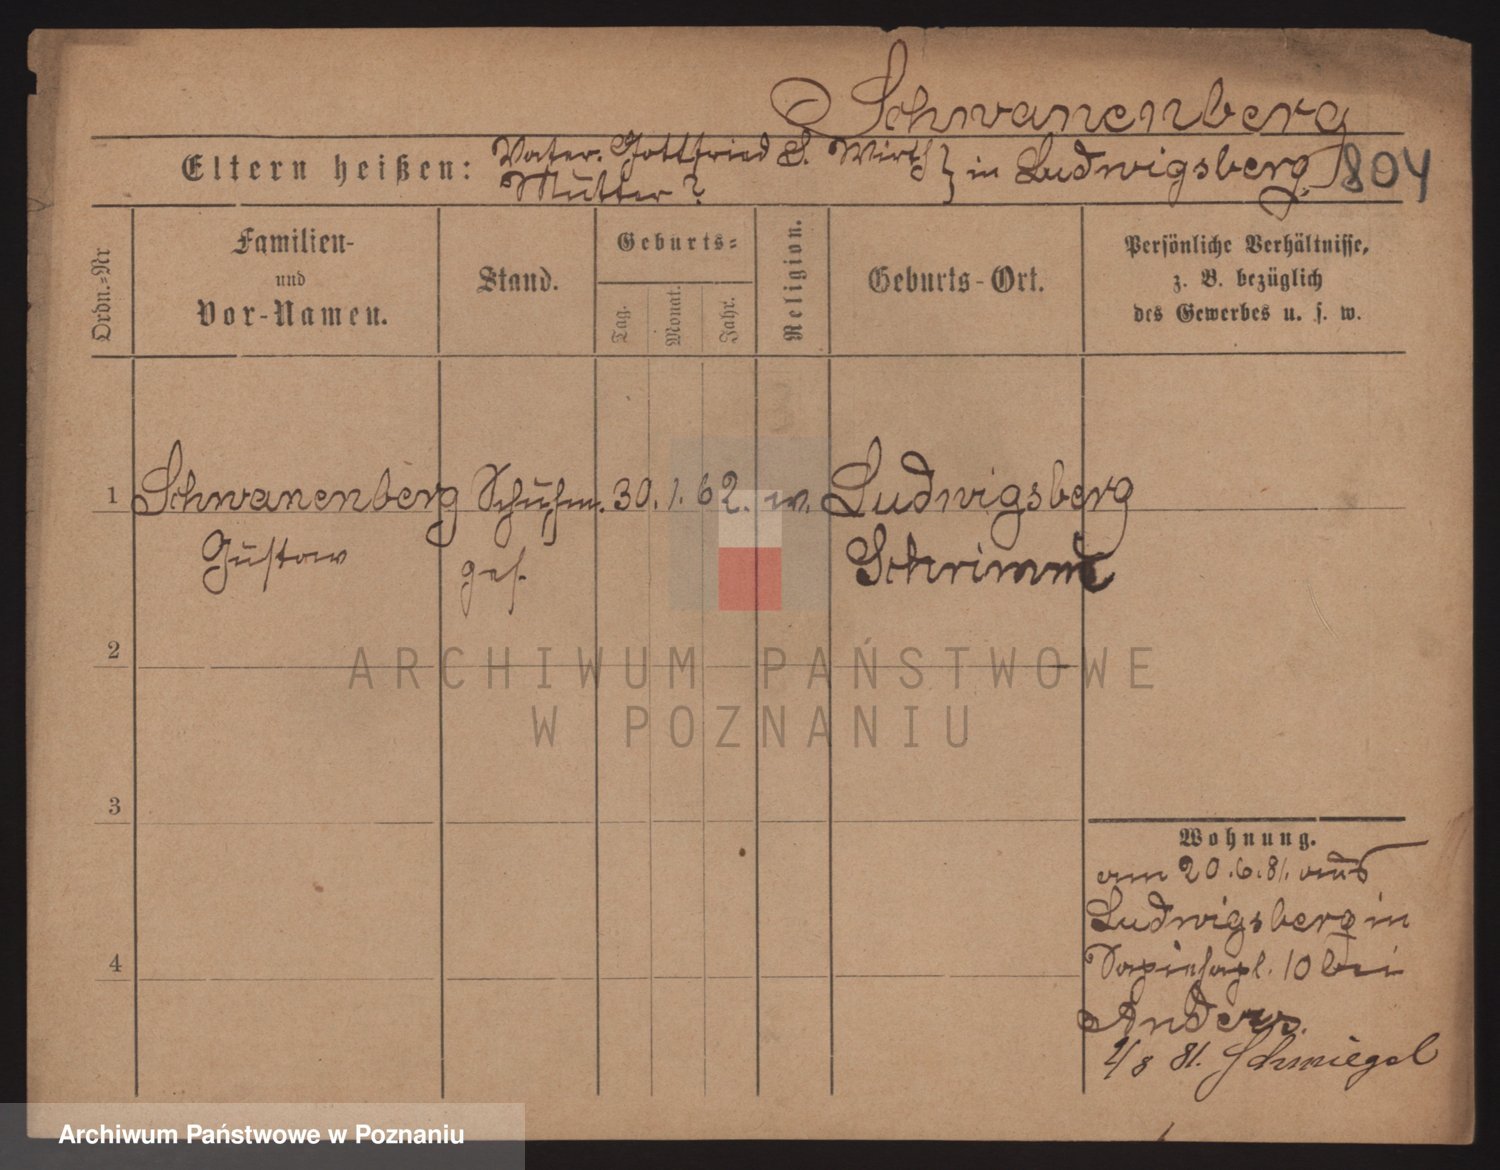 Schwanenberg
Eltern heißen: Vater. Gottfried S. Wirth } in Ludwigsberg. 804
Mutter ?
Ordn.=Nr
Familien-
und
Vor-Namen.
Stand.
Geburts=
Tag. Monat. Jahr.
Religion.
Geburts-Ort.
Persönliche Verhältnisse,
z. B. bezüglich
des Gewerbes u. s. w.
1 Schwanenberg Schuhm. 30. 1. 62. ev. Ludwigsberg
Gustav ges. Schrimm
2
3
4
Wohnung.
am 20.6.81. aus
Ludwigsberg in
Sapiehapl. 10 bei
Anders.
1/8 81. Schmiegel
ARCHIWUM PAŃSTWOWE
W POZNANIU
Archiwum Państwowe w Poznaniu